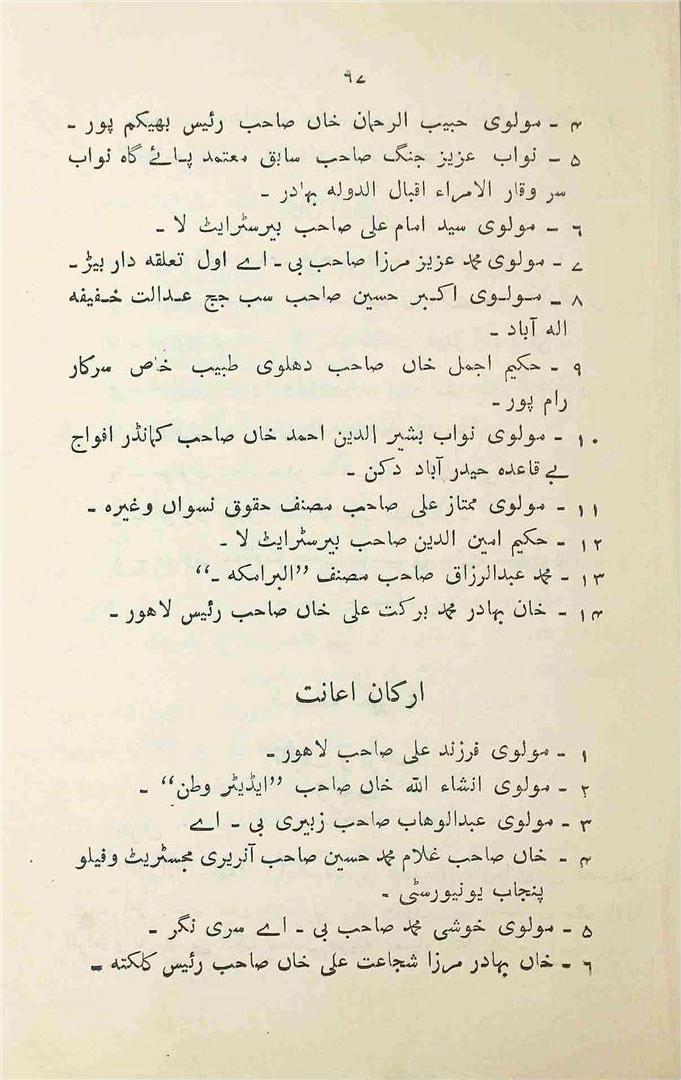 ۹۷
۴ - مولوی حبیب الرحمان خاں صاحب رئیس بھیکم پور -
۵ - نواب عزیز جنگ صاحب سابق معتمد پائے گاہ نواب
سر وقار الامراء اقبال الدولہ بہادر -
۶ - مولوی سید امام علی صاحب بیرسٹرایٹ لا -
۷ - مولوی محمد عزیز مرزا صاحب بی - اے اول تعلقہ دار بیڑ -
۸ - مولوی اکبر حسین صاحب سب جج عدالت خفیفہ
الہ آباد -
۹ - حکیم اجمل خاں صاحب دھلوی طبیب خاص سرکار
رام پور -
۱۰ - مولوی نواب بشیر الدین احمد خاں صاحب کمانڈر افواج
بے قاعدہ حیدر آباد دکن -
۱۱ - مولوی ممتاز علی صاحب مصنف حقوق نسواں وغیرہ -
۱۲ - حکیم امین الدین صاحب بیرسٹرایٹ لا -
۱۳ - محمد عبدالرزاق صاحب مصنف ”البرامکہ -“
۱۴ - خان بہادر محمد برکت علی خاں صاحب رئیس لاھور -
ارکان اعانت
۱ - مولوی فرزند علی صاحب لاھور -
۲ - مولوی انشاء اللہ خاں صاحب ”ایڈیٹر وطن“ -
۳ - مولوی عبدالوھاب صاحب زبیری بی - اے
۴ - خاں صاحب غلام محمد حسین صاحب آنریری مجسٹریٹ وفیلو
پنجاب یونیورسٹی -
۵ - مولوی خوشی محمد صاحب بی - اے سری نگر -
۶ - خاں بہادر مرزا شجاعت علی خاں صاحب رئیس کلکتہ -